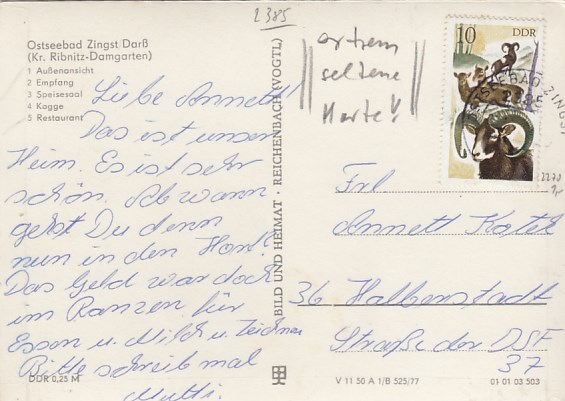 2385
Ostseebad Zingst/Darß
(Kr. Ribnitz-Damgarten)
1 Außenansicht
2 Empfang
3 Speisesaal
4 Kogge
5 Restaurant
Liebe Annett!
Das ist unser
Heim. Es ist sehr
schön. Ab wann
gehst Du denn
nun in den Hort?
Das Geld war doch
im Ranzen für
Essen u. Milch u. Zeichnen
Bitte schreib mal
Mutti.
DDR 0,25 M
BILD UND HEIMAT · REICHENBACH (VOGTL)
extrem
seltene
Karte!!
10 DDR
OSTSEEBAD ZINGST
2385
2270
Frl
Annett
36 Halberstadt
Straße der DSF
37
V 11 50 A 1/B 525/77
01 01 03 503